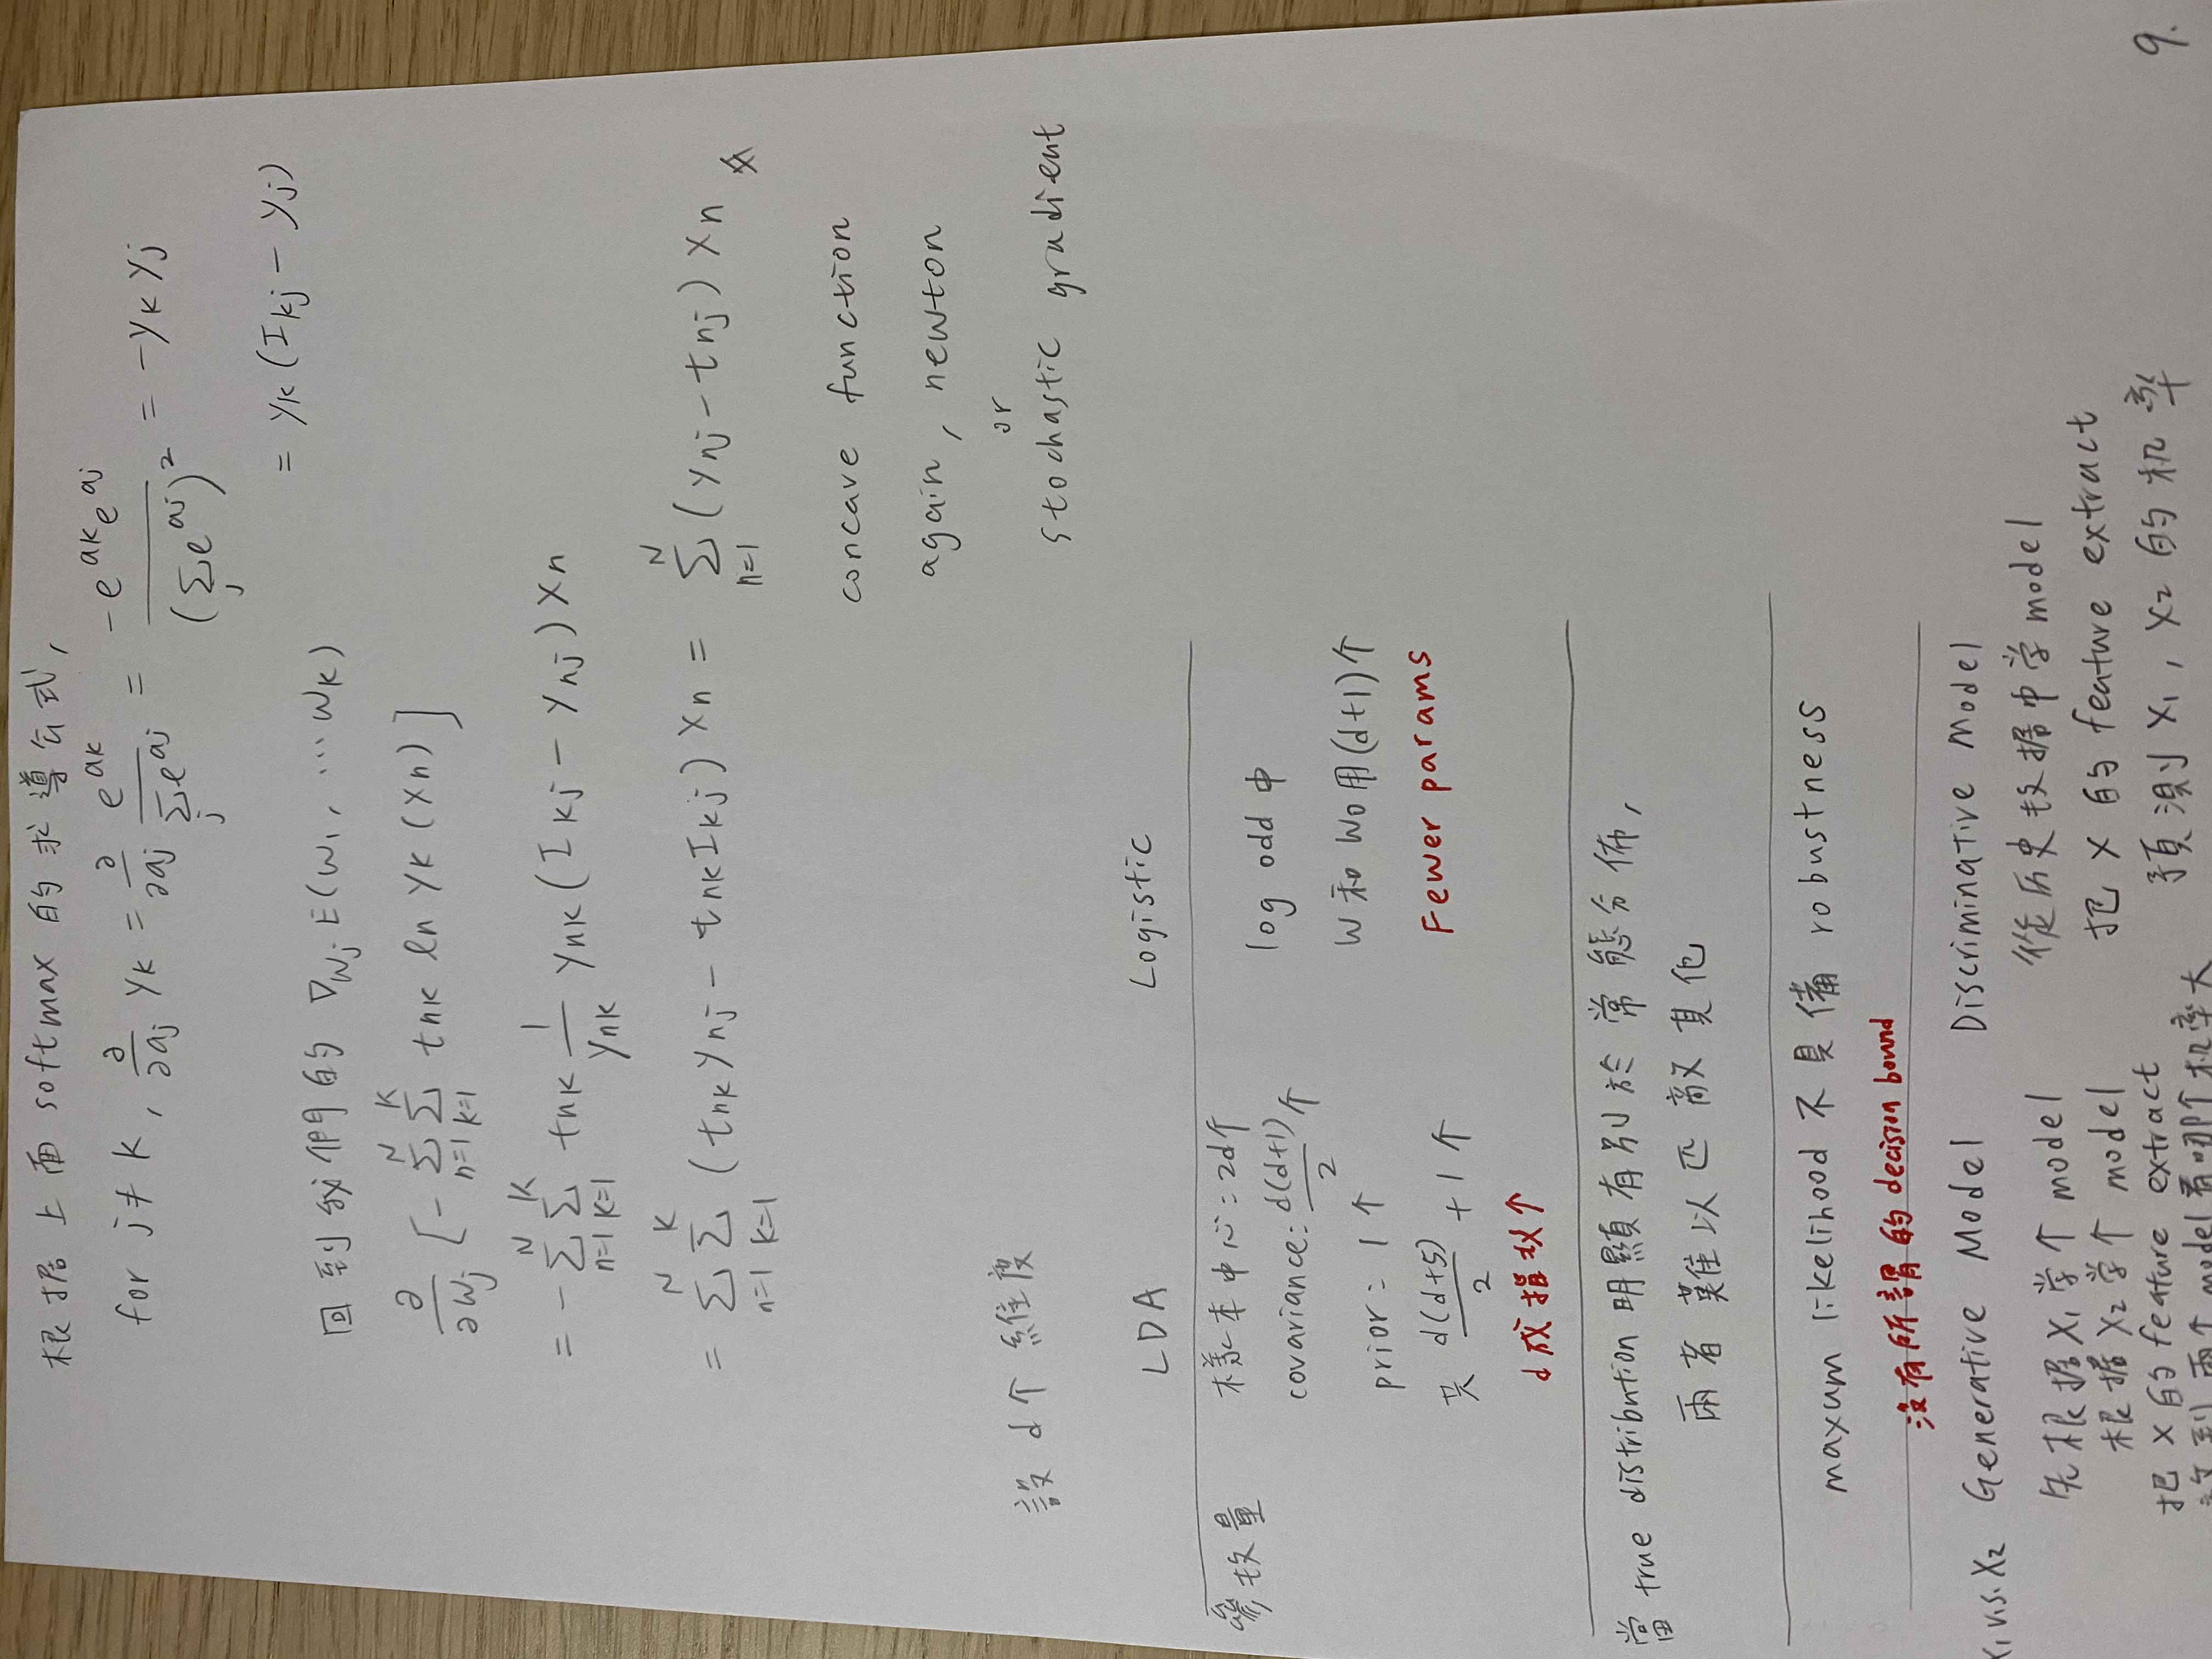 根据上面 softmax 的求導公式,
for j ≠ k, ∂/∂aj yk = ∂/∂aj e^ak / Σj e^aj = -e^ak e^aj / (Σj e^aj)² = -yk yj
= yk (Ikj - yj)
回到我們的 ∇wj E(w1, ... wk)
∂/∂wj [-Σ(n=1..N) Σ(k=1..K) tnk ln yk (xn)]
= -Σ(n=1..N) Σ(k=1..K) tnk 1/ynk ynk (Ikj - ynj) xn
= Σ(n=1..N) Σ(k=1..K) (tnk ynj - tnk Ikj) xn = Σ(n=1..N) (ynj - tnj) xn
concave function
again, newton
or
stochastic gradient
設 d个 維度
LDA Logistic
參数量 樣本中心: 2d个
covariance: d(d+1)/2 个
prior: 1个
共 d(d+5)/2 + 1个
d成指数↑
log odd 中
w 和 w0 用(d+1)个
Fewer params
當 true distribution 明顯有別於常態分佈,
兩者難以匹敵其他
maxum likelihood 不具備 robustness
沒有所謂的 decision bound
x1 v.s. x2 Generative Model Discriminative Model
先根据 x1 学个 model
根据 x2 学个 model
把 x 的 feature extract
放到兩个 model 看哪个机率大
從历史数据中学 model
把 x 的 feature extract
預測 x1, x2 的机率
9.